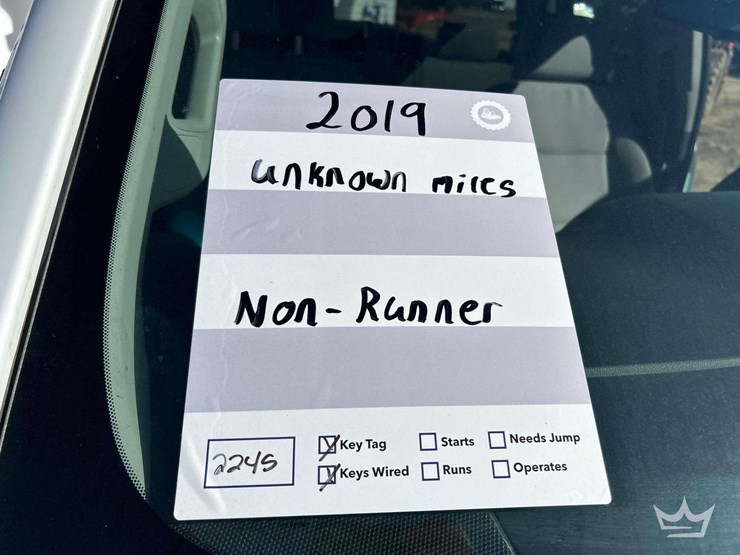 2019
unknown miles
Non-Runner
2245 Key Tag Starts Needs Jump
Keys Wired Runs Operates